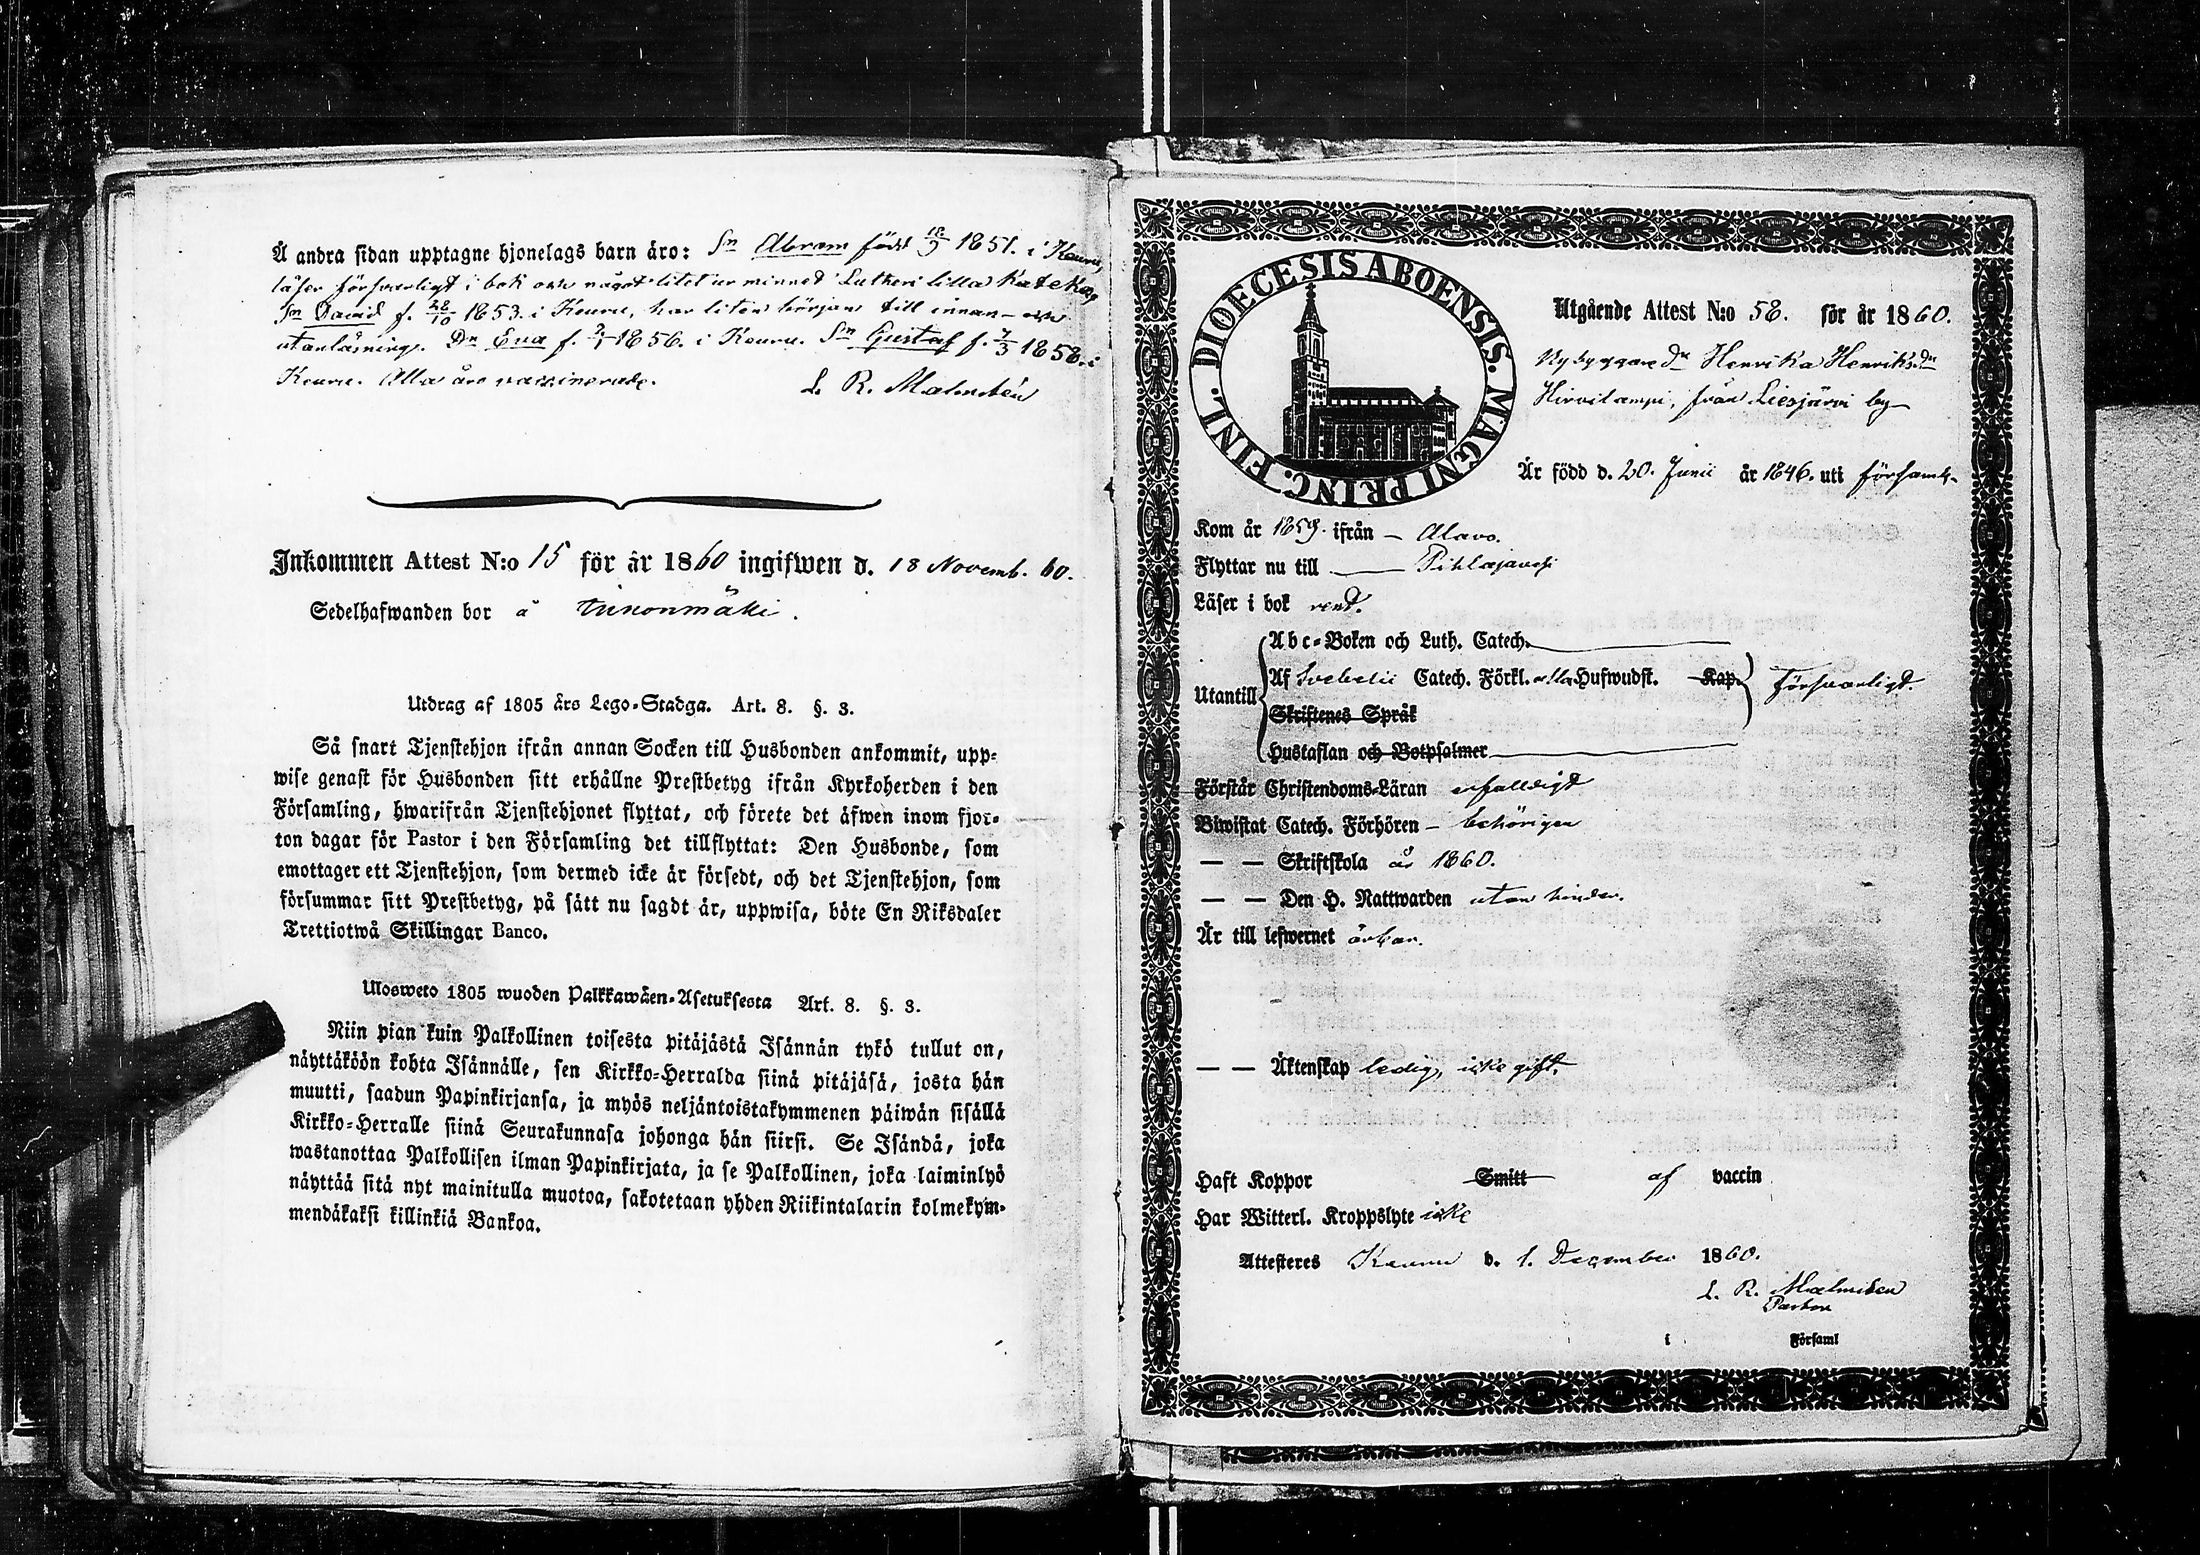 Å andra sidan upptagne hjonelags barn äro: Sn Abram född 18/9 1851. i Keuru,
läser förswarligt i bok och något litet ur minnet Lutheri lilla Katekes,
Sn David f. 28/10 1853. i Keuru, har liten början till innan- och
utanläsning. Dn Eva f. 2/1 1856. i Keuru. Sn Gustaf f. 7/3 1858. i
Keuru. Alla äro vaccinerade. L. R. Malmstén
Inkommen Attest N:o 15 för år 1860 ingifwen d. 18 Novemb. 60.
Sedelhafwanden bor å
Utdrag af 1805 års Lego-Stadga. Art. 8. §. 3.
Så snart Tjenstehjon ifrån annan Socken till Husbonden ankommit, upp-
wise genast för Husbonden sitt erhållne Prestbetyg ifrån Kyrkoherden i den
Församling, hwarifrån Tjenstehjonet flyttat, och förete det äfwen inom fjor-
ton dagar för Pastor i den Församling det tillflyttat: Den Husbonde, som
emottager ett Tjenstehjon, som dermed icke är försedt, och det Tjenstehjon, som
försummar sitt Prestbetyg, på sätt nu sagdt är, uppwisa, böte En Riksdaler
Trettiotwå Skillingar Banco.
Ulosweto 1805 wuoden Palkkawäen-Asetuksesta Art. 8. §. 3.
Niin pian kuin Palkollinen toisesta pitäjästä Isännän tykö tullut on,
näyttäköön kohta Isännälle, sen Kirkko-Herralda siinä pitäjäsä, josta hän
muutti, saadun Papinkirjansa, ja myös neljäntoistakymmenen päiwän sisällä
Kirkko-Herralle siinä Seurakunnasa johonga hän siirsi. Se Isändä, joka
wastanottaa Palkollisen ilman Papinkirjata, ja se Palkollinen, joka laiminlyö
näyttää sitä nyt mainitulla muotoa, sakotetaan yhden Riikintalarin kolmekym-
mendäkaksi killinkiä Bankoa.
DIOECESIS ABOENSIS. MAGNI PRINC. FINL.
Utgående Attest N:o 58. för år 1860.
Nybyggare Dn Henrika Henriksdn
Hirvilampi, från Liesjärvi by
Är född d. 20. Junii år 1846. uti församl.
Kom år 1859. ifrån – Alavo.
Flyttar nu till —— Pihlajavesi
Läser i bok rent.
Utantill
Abc-Boken och Luth. Catech.
Af Svebelii Catech. Förkl. Hufwudst. Kap. försvarligt.
Skriftenes Språk
Hustaflan och Botpsalmer
Förstår Christendoms-Läran enfalldigt
Biwistat Catech. Förhören – behörigen
— — Skriftskola år 1860.
— — Den H. Nattwarden utan hinder.
Är till lefwernet ärbar.
— — Äktenskap ledig, icke gift.
Haft Koppor Smitt af vaccin
Har Witterl. Kroppslyte icke
Attesteres Keuru d. 1. December 1860.
L. R. Malmstén
Pastor
i Församl